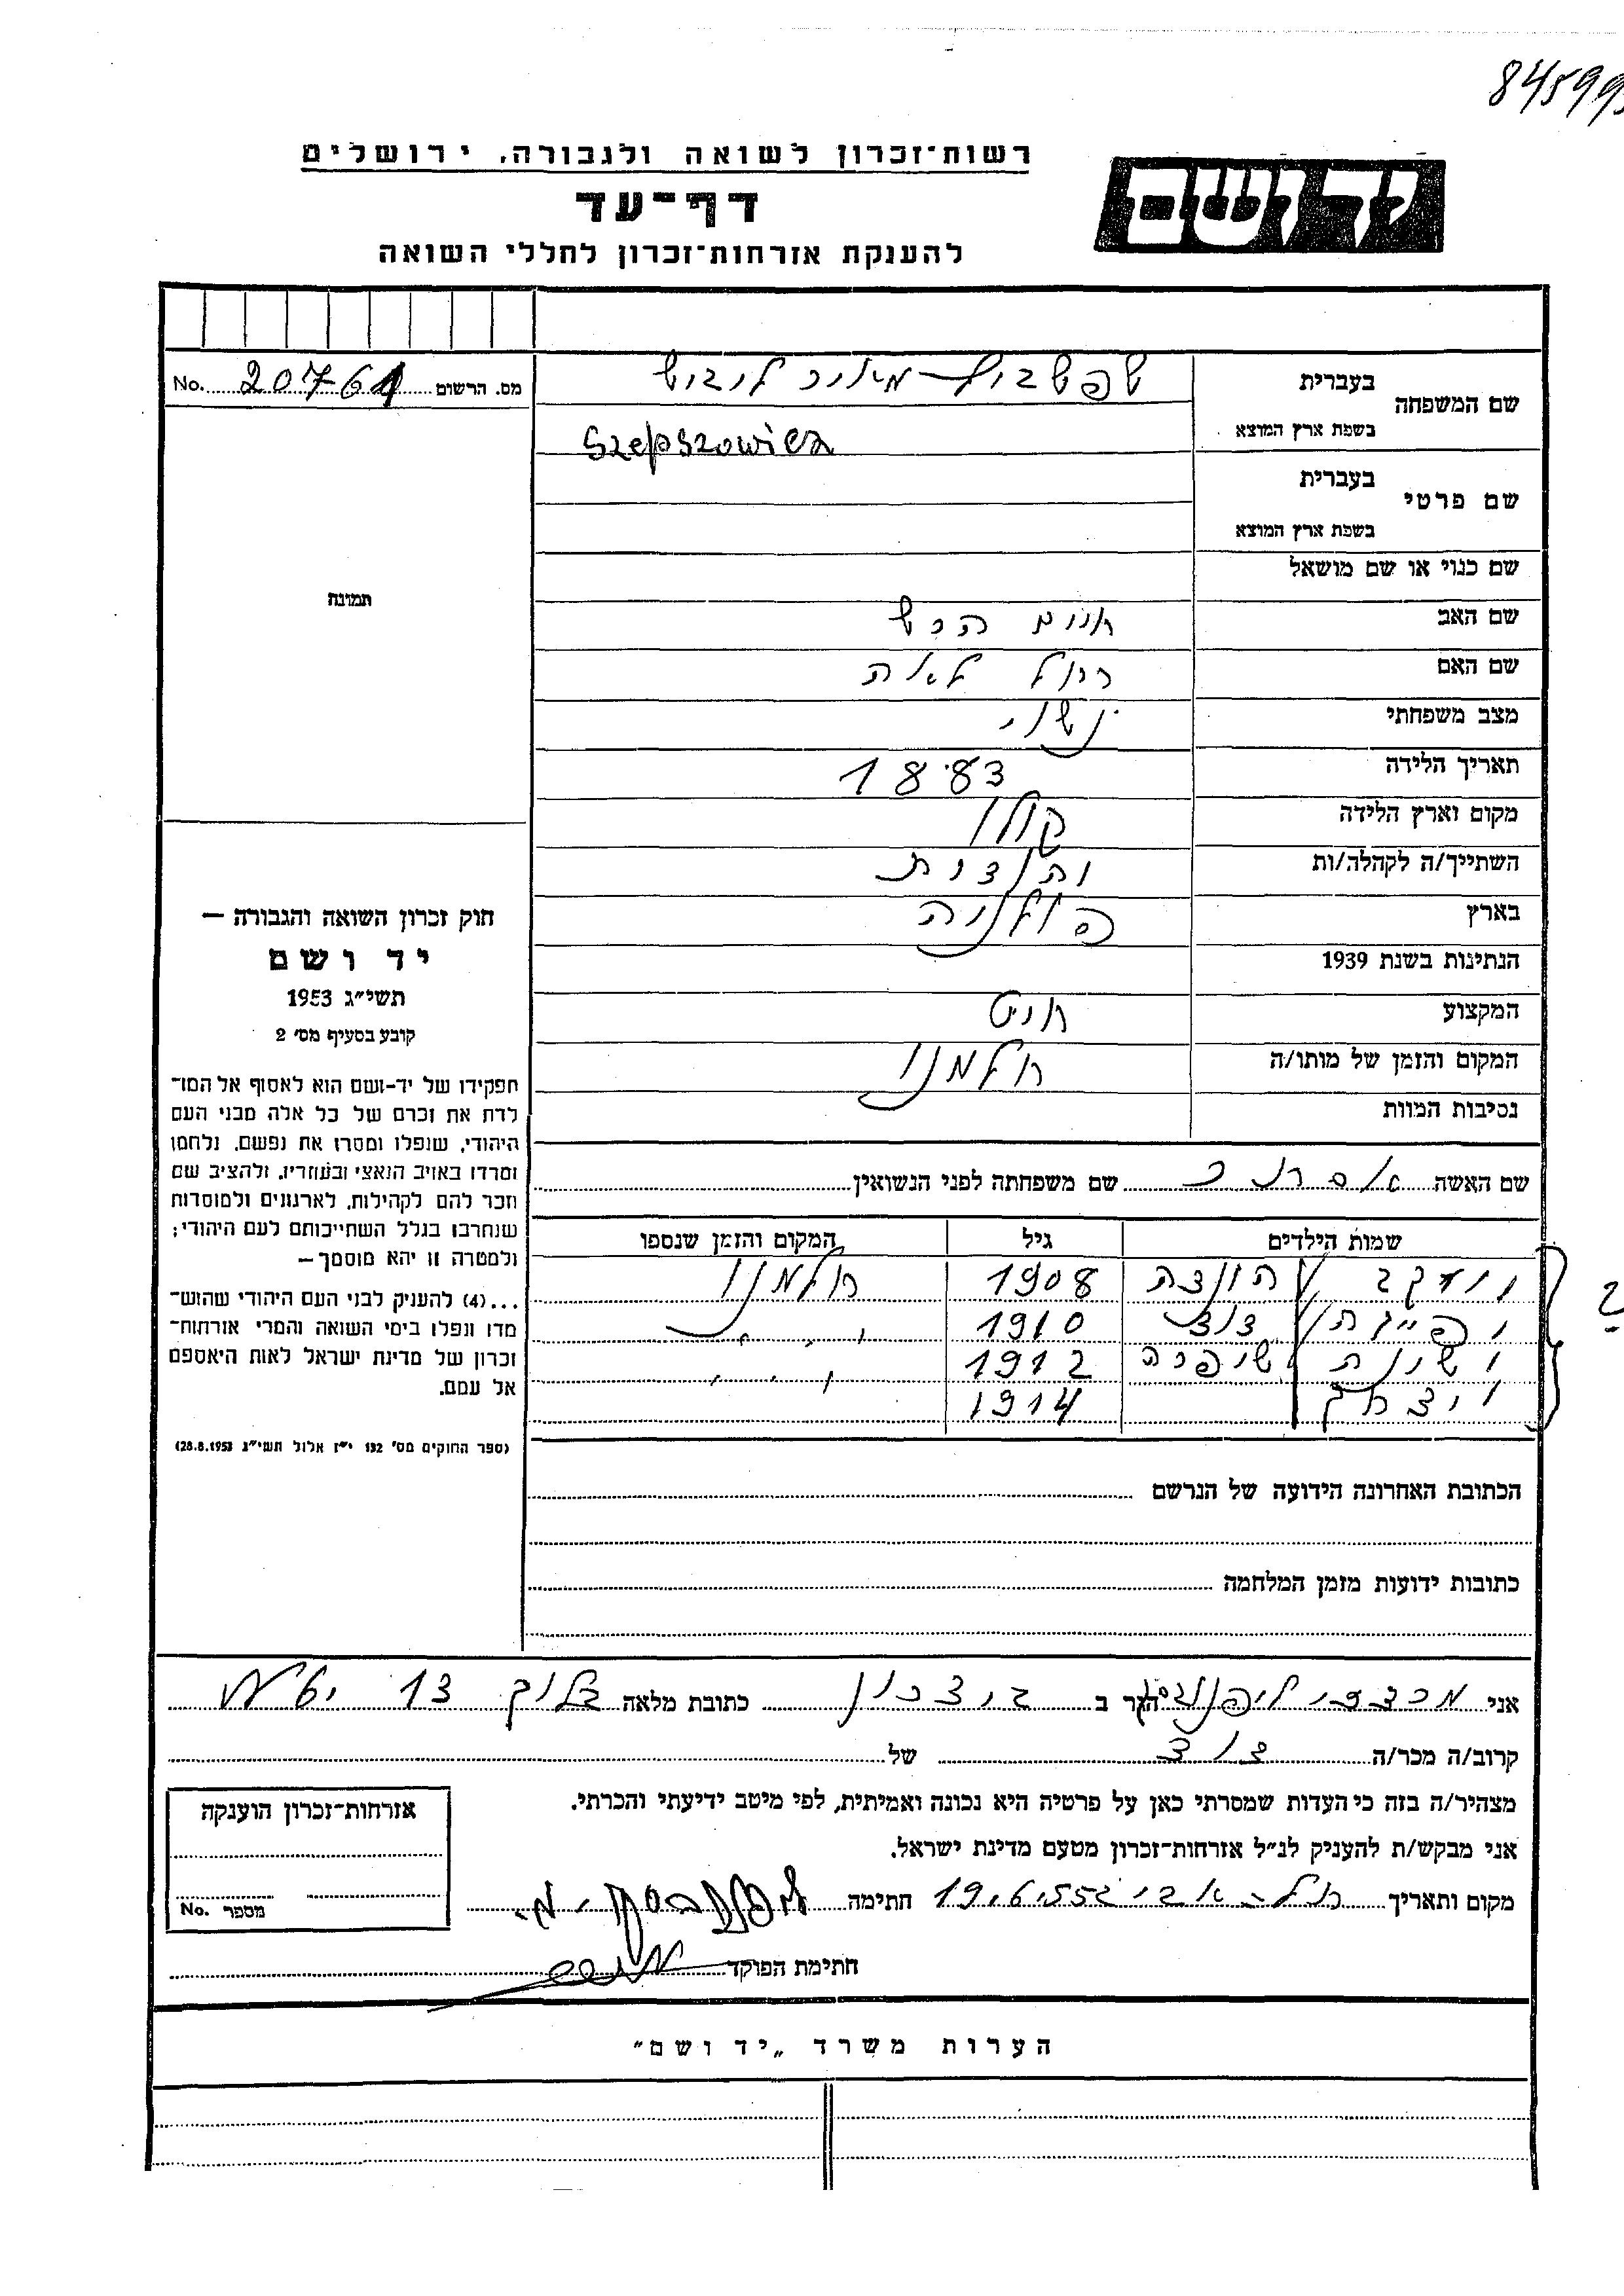 84599
רשות־זכרון לשואה ולגבורה, ירושלים
יד ושם
דף־עד
להענקת אזרחות־זכרון לחללי השואה
מס. הרשום 20761 No.
שם המשפחה בעברית מאיר לייביש
בשפת ארץ המוצא Szepszowicz
שם פרטי בעברית
בשפת ארץ המוצא
שם כנוי או שם מושאל
תמונה
שם האב חיים הרש
שם האם רחל לאה
מצב משפחתי נשוי
תאריך הלידה 1883
מקום וארץ הלידה קולו
השתייך/ה לקהלה/ות
בארץ פולניה
הנתינות בשנת 1939
המקצוע חיט
המקום והזמן של מותו/ה חלמנו
נסיבות המוות
חוק זכרון השואה והגבורה —
יד ושם
תשי״ג 1953
קובע בסעיף מס׳ 2
תפקידו של יד-ושם הוא לאסוף אל המו־
לדת את זכרם של כל אלה מבני העם
היהודי, שנפלו ומסרו את נפשם, נלחמו
ומרדו באויב הנאצי ובעוזריו, ולהציב שם
וזכר להם לקהילות, לארגונים ולמוסדות
שנחרבו בגלל השתייכותם לעם היהודי;
ולמטרה זו יהא מוסמך—
...(4) להעניק לבני העם היהודי שהוש־
מדו ונפלו בימי השואה והמרי אזרחות־
זכרון של מדינת ישראל לאות היאספם
אל עמם.
(ספר החוקים מס׳ 132 י״ז אלול תשי״ג 28.8.1953)
שם האשה אסתר שם משפחתה לפני הנשואין
שמות הילדים גיל המקום והזמן שנספו
יעקב 1908 חלמנו
1910 ״
1912 ״
יצחק 1914
הכתובת האחרונה הידועה של הנרשם
כתובות ידועות מזמן המלחמה
אני מרדכי הגר ב כתובת מלאה בלוק 13
קרוב/ה מכר/ה של
מצהיר/ה בזה כי העדות שמסרתי כאן על פרטיה היא נכונה ואמיתית, לפי מיטב ידיעתי והכרתי.
אני מבקש/ת להעניק לנ״ל אזרחות־זכרון מטעם מדינת ישראל.
מקום ותאריך תל-אביב 19.6.55 חתימה
חתימת הפוקד
אזרחות־זכרון הוענקה
מספר No.
הערות משרד „יד ושם״